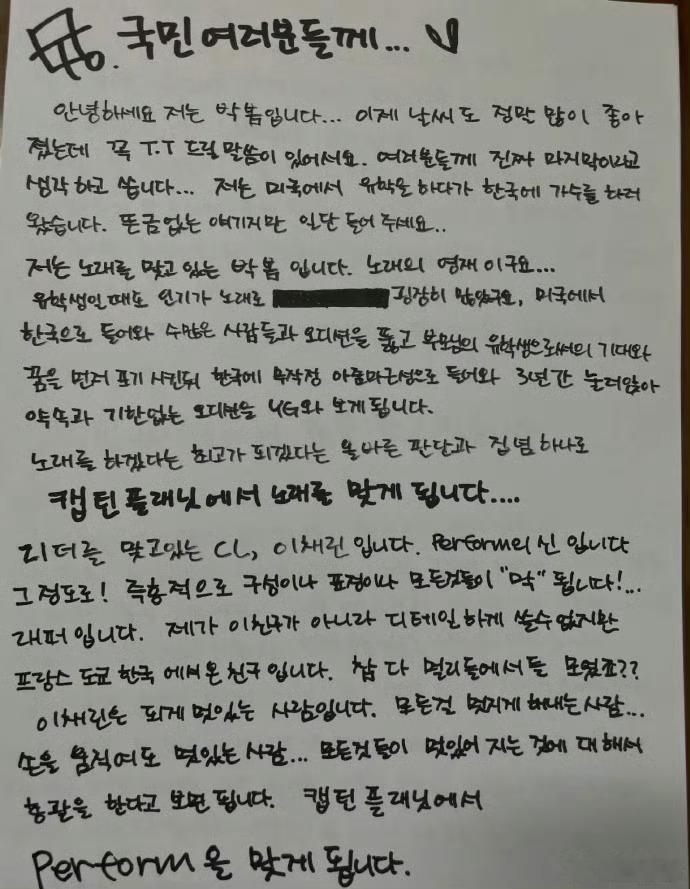 To. 국민여러분들께...
안녕하세요 저는 박봄입니다... 이제 날씨도 정말 많이 좋아
졌는데 꼭 T.T 드릴 말씀이 있어서요. 여러분들께 진짜 마지막이라고
생각하고 씁니다... 저는 미국에서 유학을 하다가 한국에 가수를 하러
왔습니다. 뜬금없는 얘기지만 일단 들어 주세요..
저는 노래를 맞고 있는 박봄 입니다. 노래의 영재 이구요...
유학생일때도 인기가 노래로 굉장히 많았구요, 미국에서
한국으로 들어와 수많은 사람들과 오디션을 뚫고 부모님의 유학생으로써의 기대와
꿈을 먼저 포기 시킨뒤 한국에 무작정 아줌마근성으로 들어와 3년간 눌러앉아
약속과 기한없는 오디션을 YG와 보게됩니다.
노래를 하겠다는 최고가 되겠다는 올바른 판단과 집념 하나로
캡틴플래닛에서 노래를 맞게 됩니다....
리더를 맞고있는 CL, 이채린입니다. Perform의 신 입니다
그정도로! 즉흥적으로 구성이나 표정이나 모든것들이 "막" 됩니다!...
래퍼입니다. 제가 이친구가 아니라 디테일하게 쓸수없지만
프랑스 도쿄 한국 에서온 친구입니다. 참 다 멀리들에서들 모였죠??
이채린은 되게 멋있는 사람입니다. 모든걸 멋지게 해내는사람...
손을 움직여도 멋있는 사람... 모든것들이 멋있어 지는 것에 대해서
총괄을 한다고 보면 됩니다. 캡틴 플래닛에서
Perform을 맞게 됩니다.